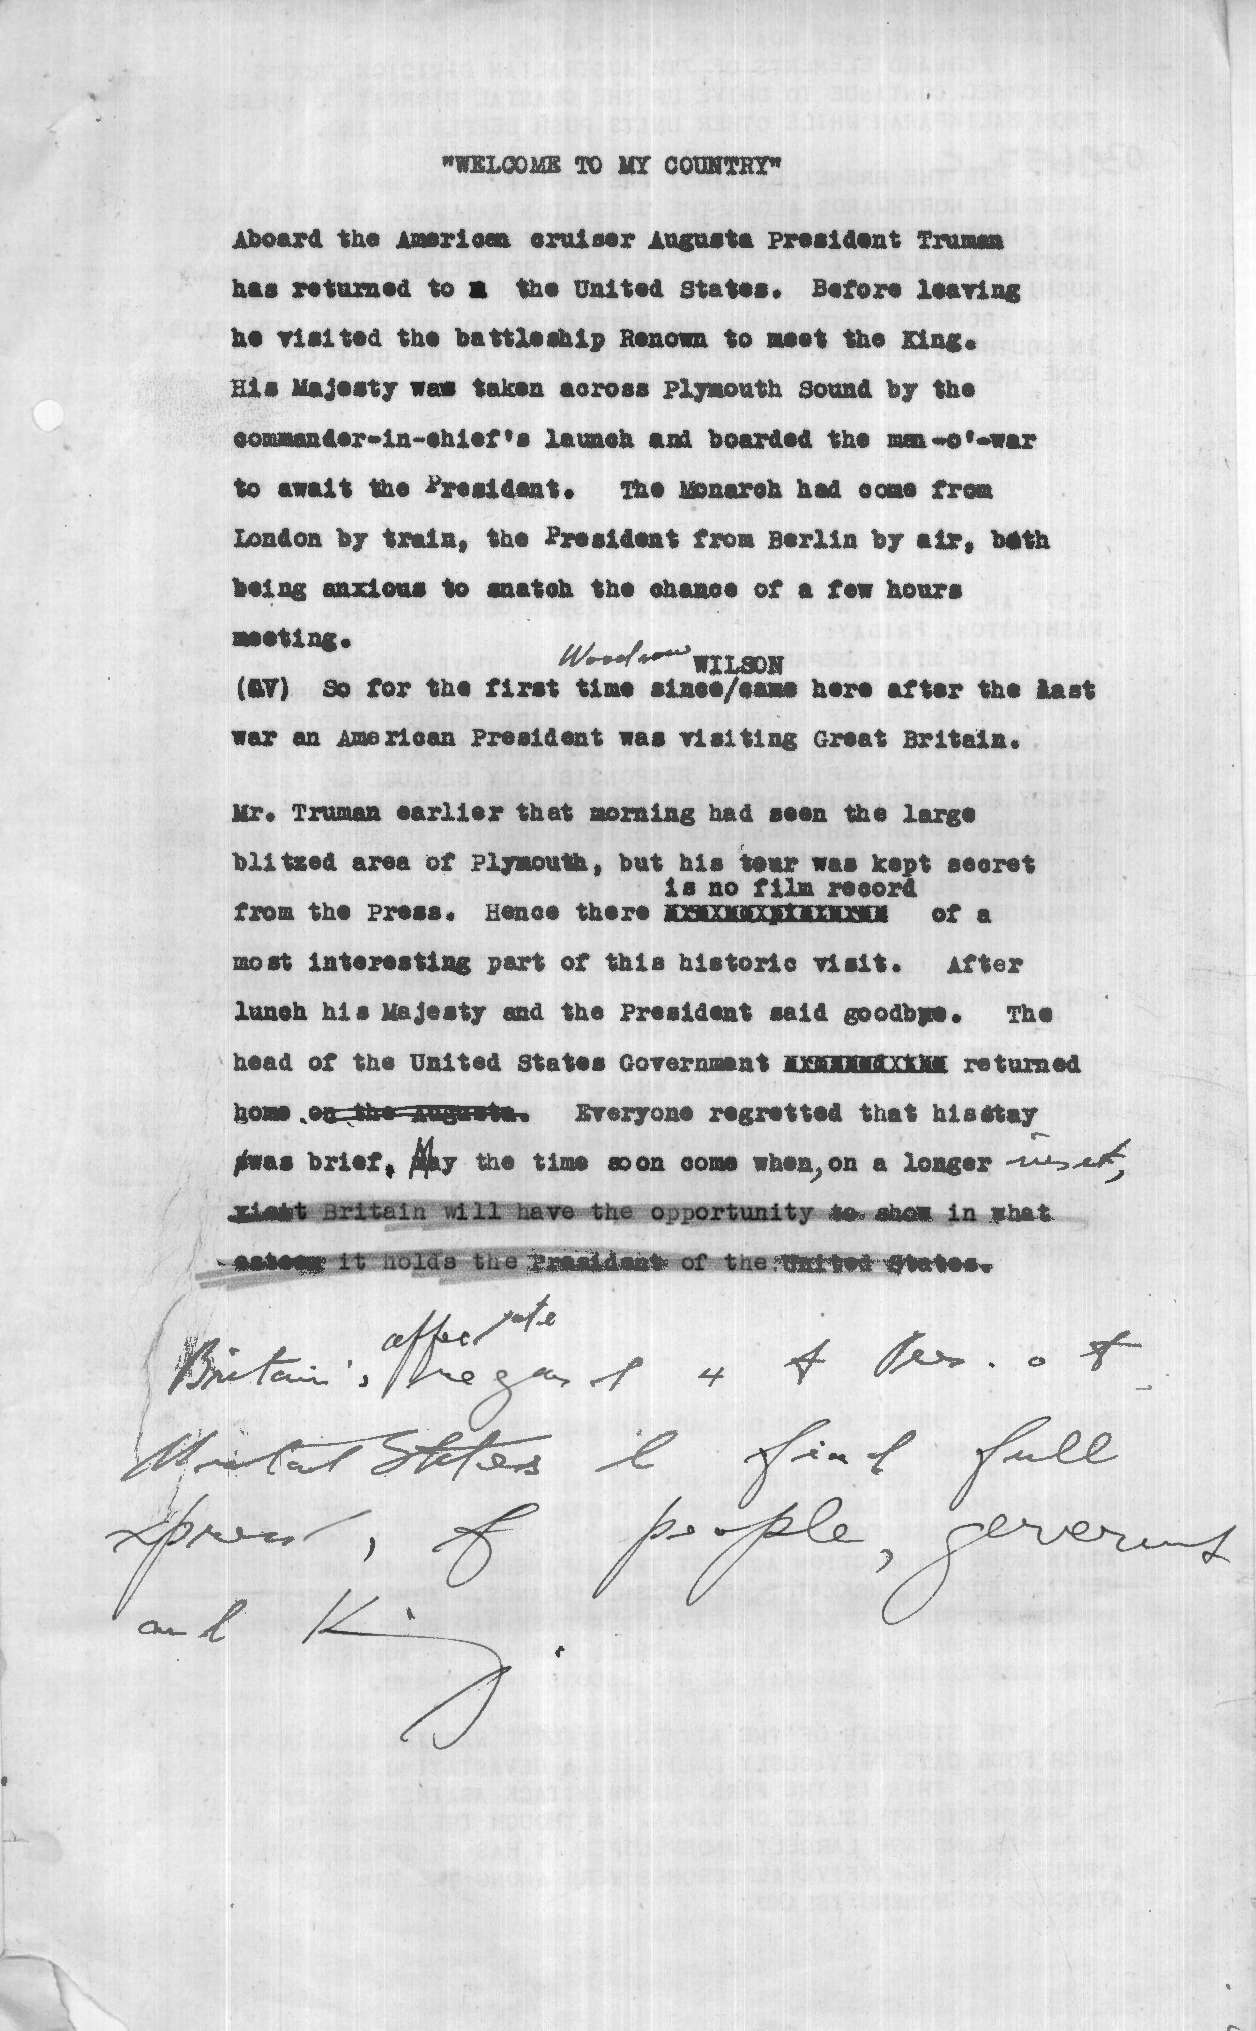 "WELCOME TO MY COUNTRY"
Aboard the American cruiser Augusta President Truman
has returned to the United States. Before leaving
he visited the battleship Renown to meet the King.
His Majesty was taken across Plymouth Sound by the
commander-in-chief's launch and boarded the man-o'-war
to await the President. The Monarch had come from
London by train, the President from Berlin by air, both
being anxious to snatch the chance of a few hours
meeting.
Woodrow WILSON
(AV) So for the first time since/came here after the last
war an American President was visiting Great Britain.
Mr. Truman earlier that morning had seen the large
blitzed area of Plymouth, but his tour was kept secret
is no film record
from the Press. Hence there of a
most interesting part of this historic visit. After
lunch his Majesty and the President said goodbye. The
head of the United States Government returned
home on the Augusta. Everyone regretted that his stay
was brief. May the time soon come when, on a longer visit,
visit Britain will have the opportunity to show in what
esteem it holds the President of the United States.
affectate
Britain's regard 4 t Pres. o t
United States l find full
xpress, of people, government
and King.